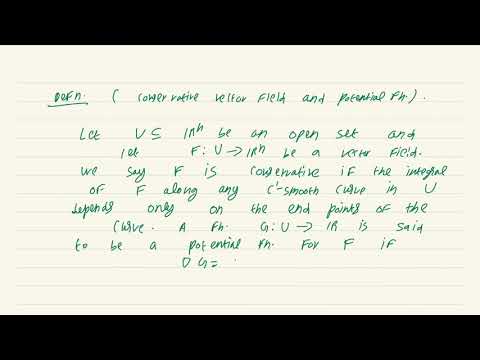 Defn. ( conservative vector field and potential fn.).
Let U ⊆ IRⁿ be an open set and
let F: U → IRⁿ be a vector field.
we say F is conservative if the integral
of F along any C'-smooth curve in U
depends only on the end points of the
curve. A fn. G: U → IR is said
to be a potential fn. for F if
D G =